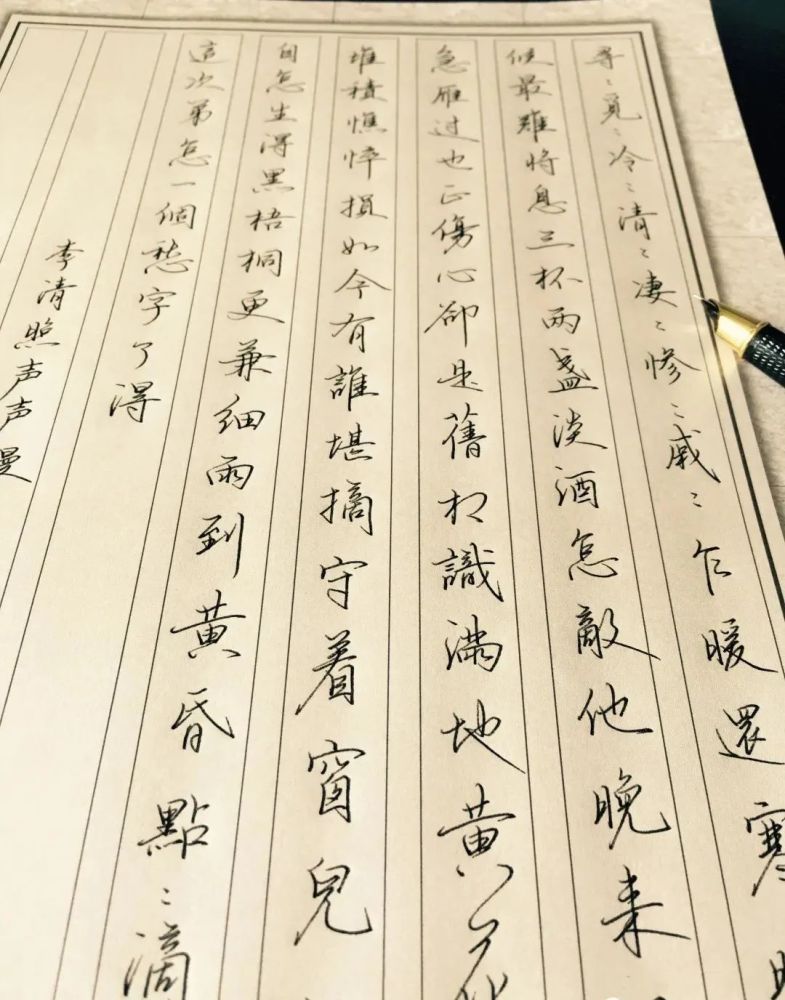 尋〻覓〻冷〻清〻凄〻惨〻戚〻乍暖還寒
候最難将息三杯两盏淡酒怎敵他晚来
急雁过也正傷心卻是舊相識滿地黄花
堆積憔悴損如今有誰堪摘守着窗兒
自怎生得黑梧桐更兼細雨到黄昏點〻滴
這次第怎一個愁字了得
李清照声声慢